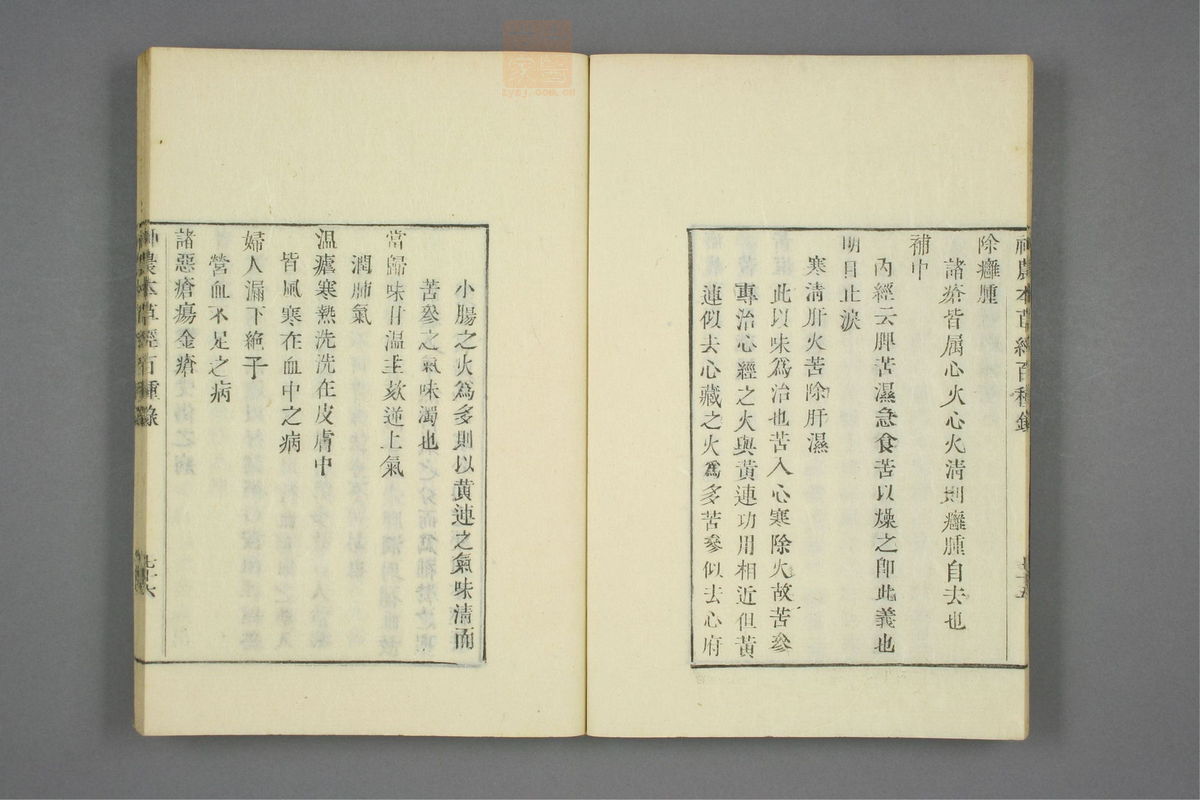 除癰腫
諸瘡皆屬心火心火清則癰腫自去也
補中
內經云脾苦濕急食苦以燥之即此義也
明目止淚
寒清肝火苦除肝濕
此以味爲治也苦入心寒除火故苦參
專治心經之火與黃連功用相近但黃
連似去心藏之火爲多苦參似去心府
神農本草經百種錄
七十五
小腸之火爲多則以黃連之氣味清而
苦參之氣味濁也
當歸味甘溫主欬逆上氣
潤肺氣
溫瘧寒熱洗洗在皮膚中
皆風寒在血中之病
婦人漏下絶子
營血不足之病
諸惡瘡瘍金瘡
神農本草經百種錄
七十六
zysj.com.cn